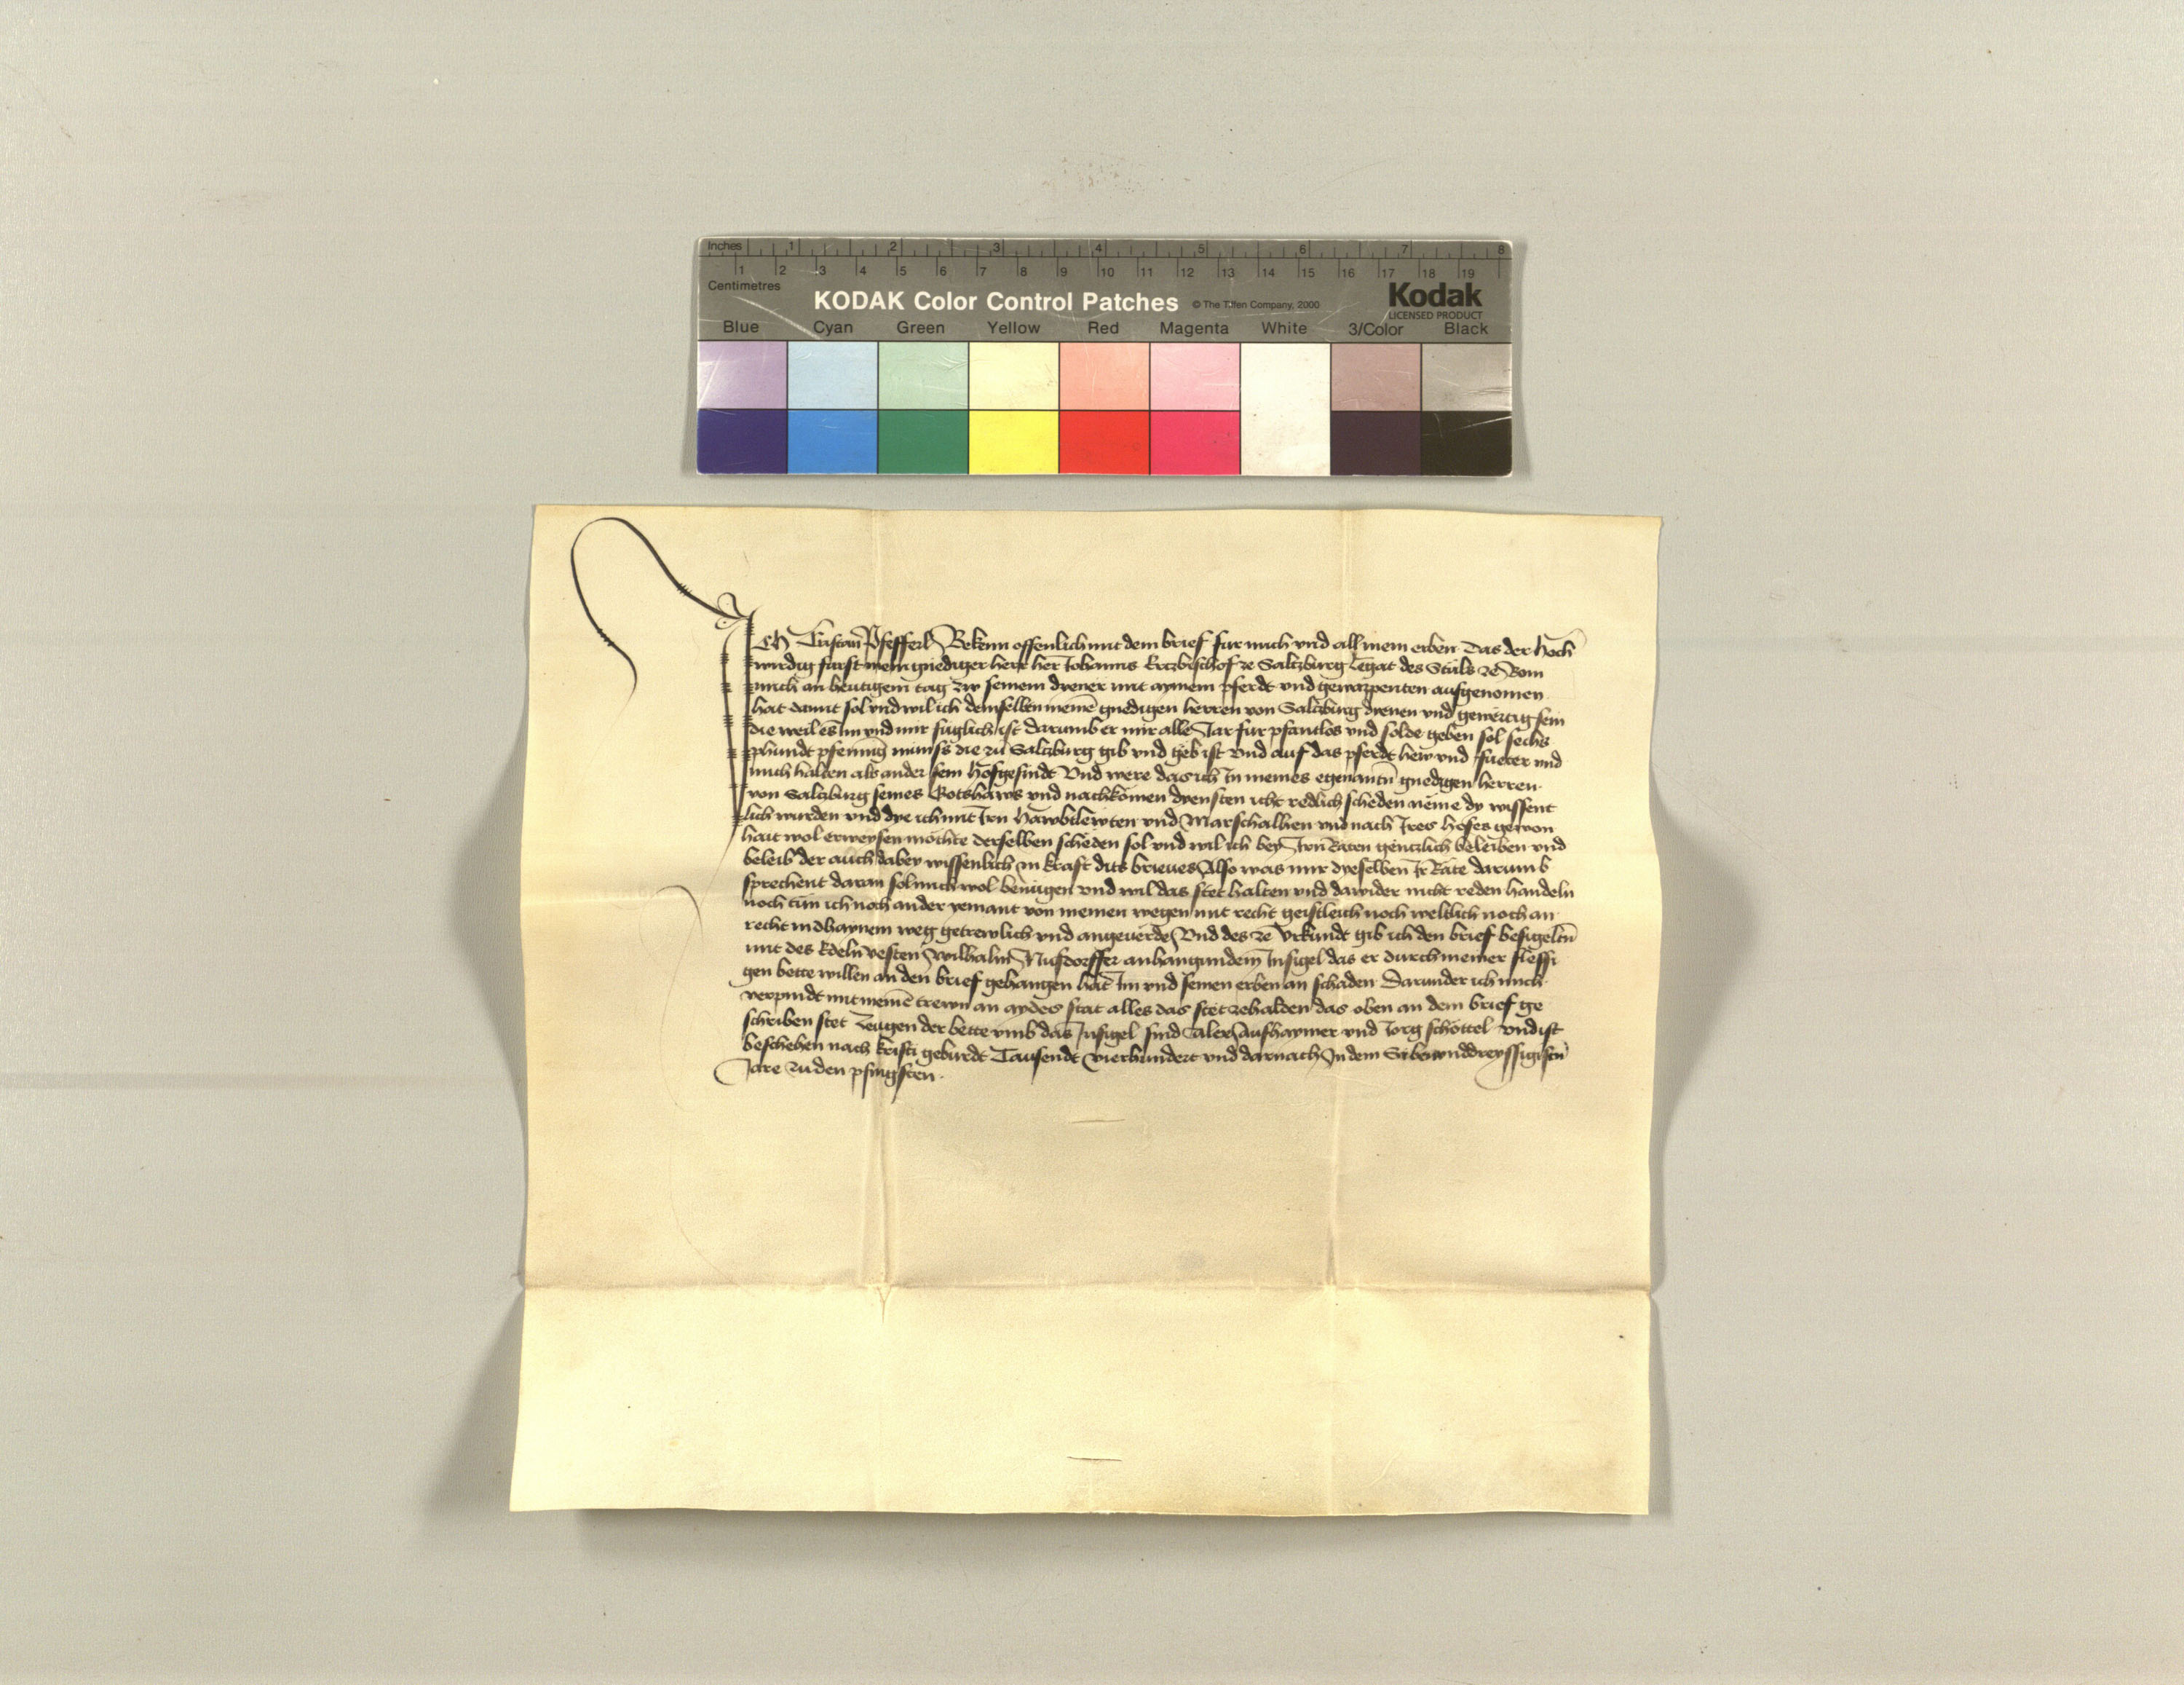 Inches 1 2 3 4 5 6 7 8
1 2 3 4 5 6 7 8 9 10 11 12 13 14 15 16 17 18 19
Centimetres
KODAK Color Control Patches © The Tiffen Company, 2000 Kodak
LICENSED PRODUCT
Blue Cyan Green Yellow Red Magenta White 3/Color Black
Ich Tristan Pfefferl Bekenn offenlich mit dem brief fur mich vnd all mein erben Das der hoch
wirdig furst mein gnediger herr her Johanns Ertzbischof ze Saltzburg Legat des Stuls ze Rom
mich an hewtigem tag zw seinem dyener mit aynem pferdt vnd gewappenten aufgenomen
hat damit sol vnd wil ich demselben meinē gnedigen herren von Saltzburg dyenen vnd gewertig sein
die weil es im vnd mir fuglich ist darumb er mir alle Jar fur pfantlos vnd solde geben sol sechs
phundt pfening munss die zu Saltzburg gib vnd geb ist vnd auf das pferdt hew vnd fueter vnd
mich halten als ander sein hofgesindt Vnd were das ich In meines egenantn̄ gnedigen herren
von Saltzburg seines Gotshaws vnd nachkomen dyensten icht redlich scheden neme dy wissent
lich wurden vnd dye ich mit Irn hawbtlewten vnd Marschalhen vnd nach Ires hofes gewon
hait wol erweysen mochte derselben scheden sol vnd wil ich bey Irn Räten gentzlich beleiben vnd
beleib der auch dabey wissenlich in kraft dits brieues Also was mir dyeselben Ir Räte darumb
sprechent daran sol mich wol benügen vnd wil das stet halten vnd dawider nicht reden handeln
noch tun ich noch ander yemant von meinen wegen mit recht geistleich noch weltlich noch an
recht in dhaynem weg getrewlich vnd angeuerde Vnd des ze Vrkundt gib ich den brief besigeltn̄
mit des Edeln vesten Wilhalm Nusdorffer anhangundem Insigel das er durch meiner fleissi
gen bette willen an den brief gehangen hat Im vnd seinen erben an schaden Darunder ich mich
verpindt mit meinē trewn an aydes stat alles das stet zehalden das oben an dem brief ge
schriben stet Zeugen der bette vmb das Insigel sind Aufhaymer vnd Jorg schöttel vnd ist
beschehen nach kristi geburdt Tausendt vierhundert vnd darnach In dem Sibenvnddreyssigistn̄
Jare zu den pfingsten.